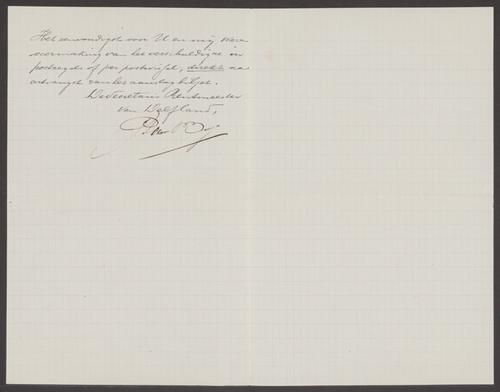 Het eenvoudigst voor U en mij ware
overmaking van het verschuldigde in
postzegels of per postwissel, direkt na
ontvangst van het aanslagbiljet.
De Secretaris Rentmeester
van Delfland,